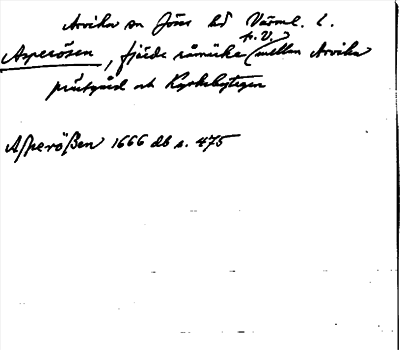 Arvika sn Jösse hd Värml. l.
Asperösen, fjärde råmärke (mellan Arvika
p. V.
prästgård och Kyrkebytegen
Aßperößen 1666 db s. 475